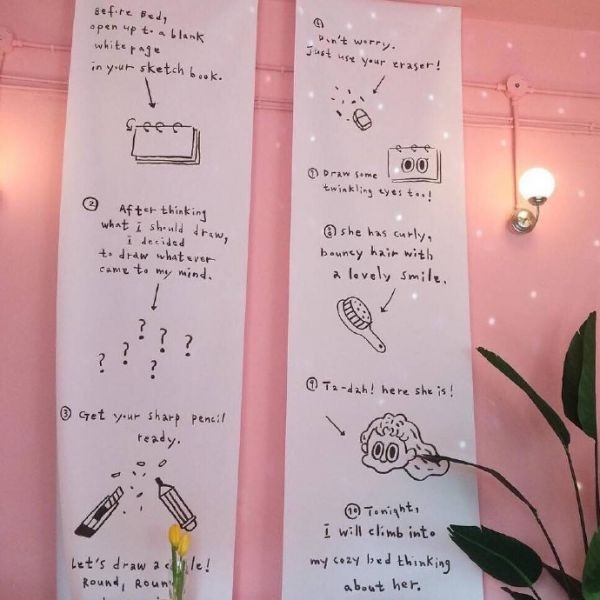 Before Bed,
open up to a blank
white page
in your sketch book.
②
After thinking
what I should draw,
I decided
to draw whatever
came to my mind.
? ? ? ? ? ?
③ Get your sharp pencil
ready.
Let's draw a
Round,
⑥
Don't worry.
Just use your eraser!
⑦ Draw some
twinkling eyes too!
⑧ She has curly,
bouncy hair with
a lovely smile.
⑨ Ta-dah! here she is!
⑩ Tonight,
I will climb into
my cozy bed thinking
about her.